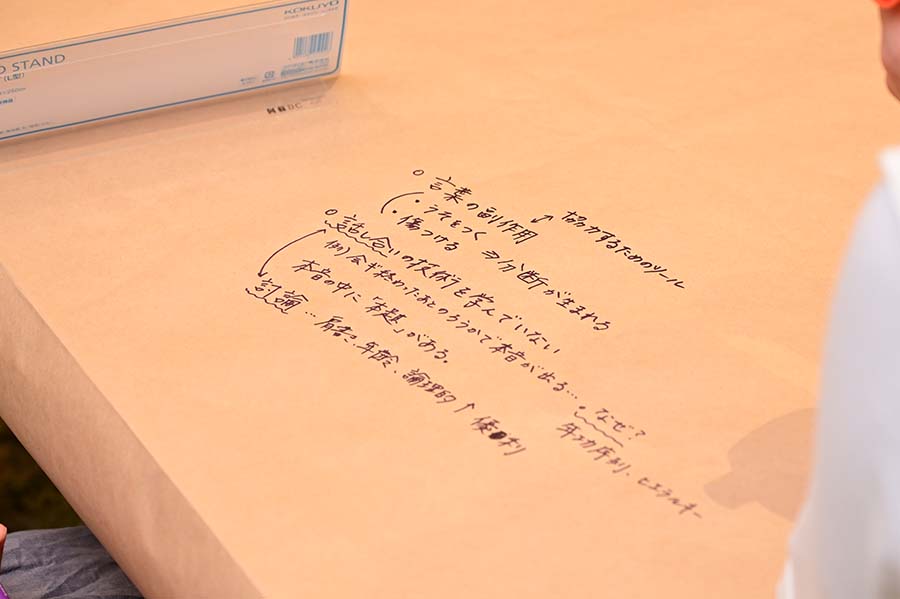 KOKUYO
D STAND
(L型)
○ 言葉の副作用 ↔ 協力するためのツール
・うそをつく
・傷つける ⇒ 分断が生まれる
○ 話し合いの技術を学んでいない
例) 会ギ終わったあとのろうかで本音が出る… ・なぜ?
年功序列、ヒエラルキー
本音の中に「本題」がある。
討論… 肩書き、年齢、論理的 ↑ 優利